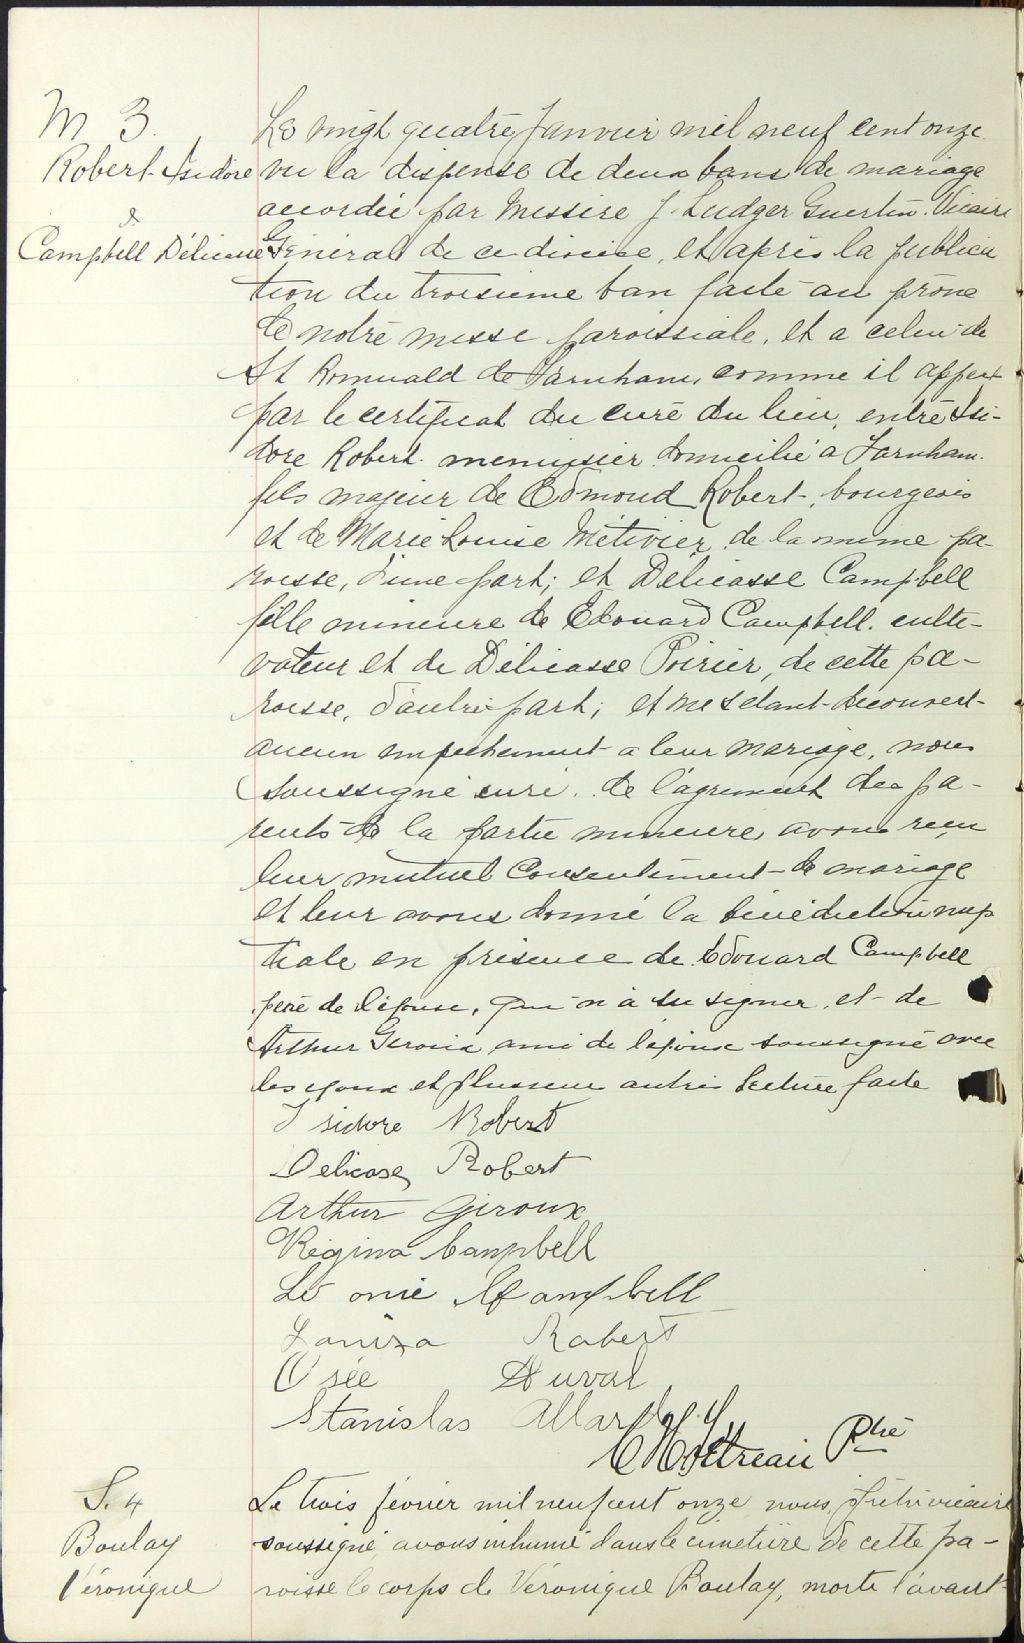 M 3.
Robert Isidore
&
Campbell Délicasse
Le vingt quatre Janvier mil neuf cent onze
vu la dispense de deux bans de mariage
accordée par Messire J. Ludger Guertin Vicaire
Général de ce diocèse, et après la publica
tion du troisième ban faite au prône
de notre messe paroissiale, et a celui de
St Romuald de Farnham, comme il appert
par le certificat du curé du lieu, entre Isi-
dore Robert menuisier domicilié a Farnham
fils majeur de Edmond Robert, bourgeois
et de Marie Louise Métivier, de la même pa-
roisse, d'une part; et Délicasse Campbell
fille mineure de Edouard Campbell culti-
vateur et de Délicasse Poirier, de cette pa-
roisse, d'autre part; et ne s'étant découvert
aucun empêchement a leur mariage, nous
soussigné curé de l'agrément des pa-
rents de la partie mineure avons reçu
leur mutuel consentement de mariage
et leur avons donné la bénédiction nup
tiale en présence de Edouard Campbell
père de l'épouse, qui n'a su signer et de
Arthur Giroux ami de l'époux soussigné avec
les époux et plusieurs autres lecture faite
Isidore Robert
Delicase Robert
Arthur Giroux
Régina Campbell
Léonie Campbell
Robert
Osée Duval
Stanislas Allard
Ptre
S. 4
Boulay
Véronique
Le trois février mil neuf cent onze nous, prêtre vicaire
soussigné avons inhumé dans le cimetière de cette pa-
roisse le corps de Véronique Boulay, morte l'avant-